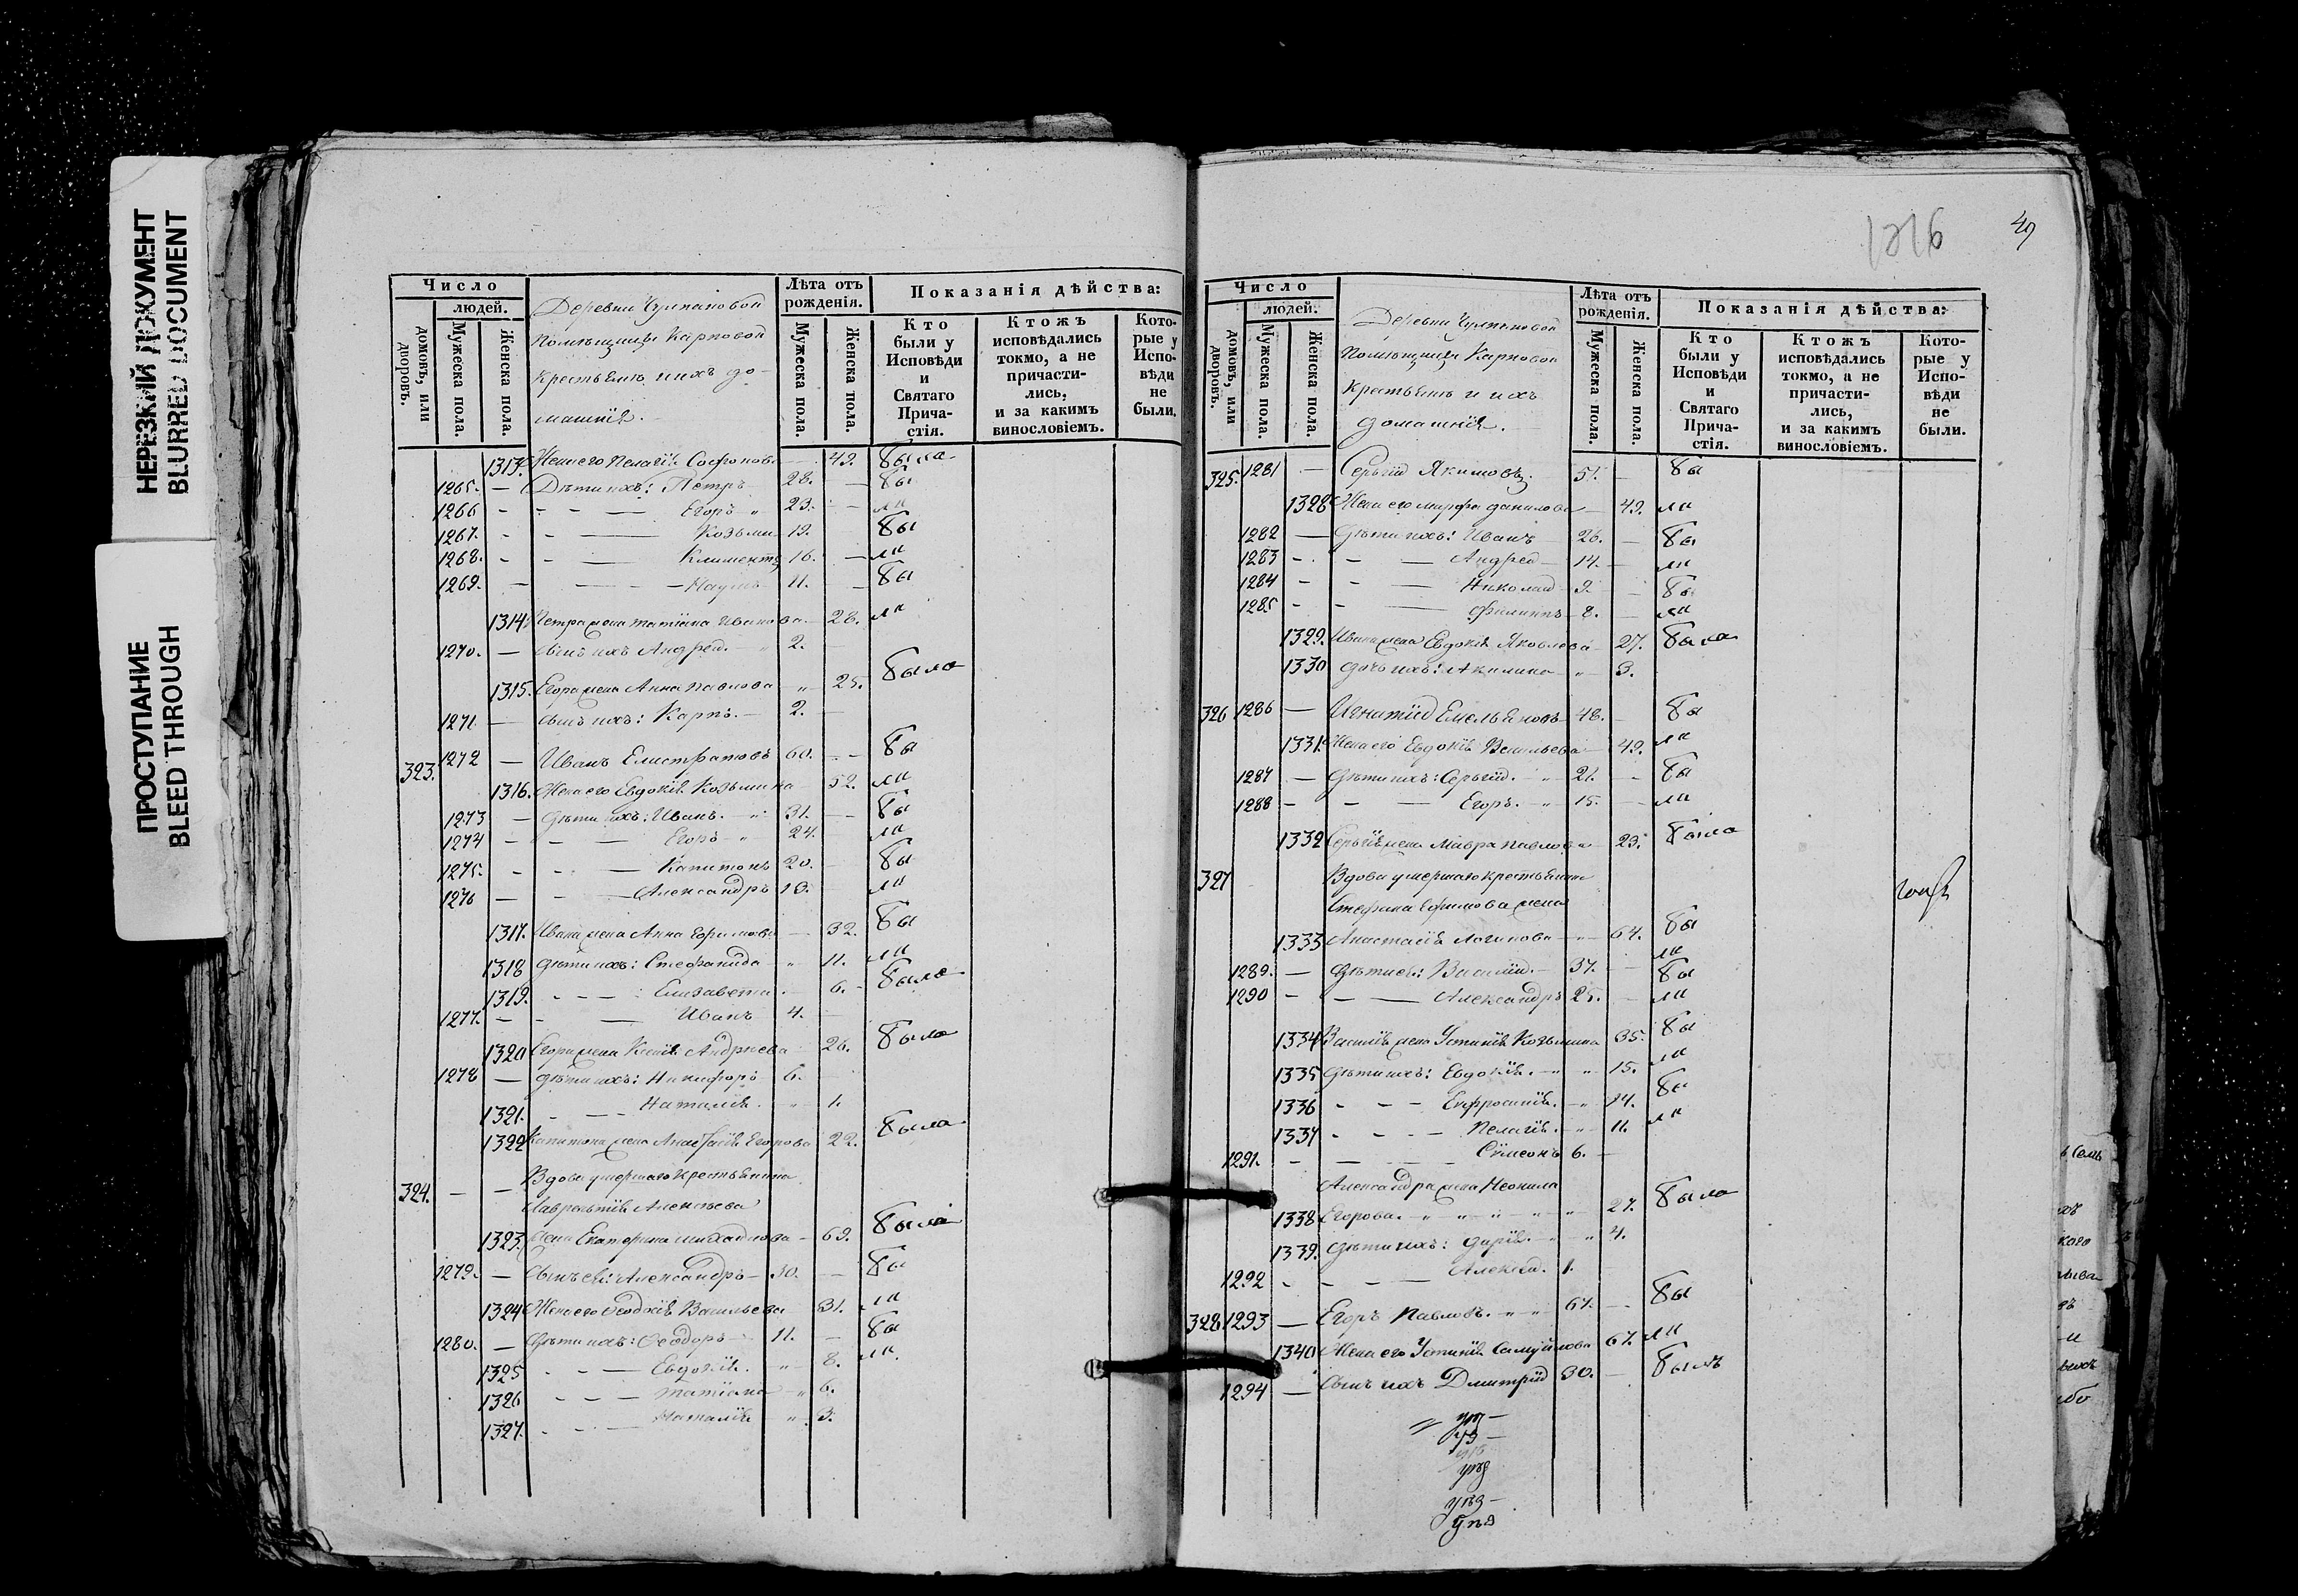 НЕРЕЗКИЙ ДОКУМЕНТ
BLURRED DOCUMENT
ПРОСТУПАНИЕ
BLEED THROUGH
Число
людей.
домовъ, или дворовъ.
Мужеска пола.
Женска пола.
Деревни
помѣщицы Карповой
крестьянъ и ихъ до-
машнiе.
Лѣта отъ рожденiя.
Мужеска пола.
Женска пола.
Показанiя дѣйства:
Кто были у Исповѣди и Святаго Прича-стiя.
Ктожъ исповѣдались токмо, а не причасти-лись, и за какимъ винословiемъ.
Кото-рые у Испо-вѣди не были.
1313. Жена его Пелагiя Софронова 49. была
1265. — Дѣти ихъ: Петръ 28. — бы
1266 - - — Егоръ 23. - ли
1267. - - — Козьма 19. бы
1268. - - — Климентъ 16. — ли
1269. — — Наумъ 11. — бы
1314 Петра жена Татiана Иванова — 28. ли
1270. — сынъ ихъ Андрей. 2. —
1315. Егора жена Анна Павлова — 25. была
1271 — сынъ ихъ: Карпъ. — 2. —
323. 1272 — Иванъ Елистратовъ 60. - - бы
1316. Жена его Евдокiя Козьмина 52. ли
1273 — дѣти ихъ: Иванъ. 31. — бы
1274 - - — Егоръ 24. ли
1275. - - — Капитонъ 20. — бы
1276 — - — Александръ 19. — ли
1317. Ивана жена Анна Ефимова — 32. бы
1318 дѣти ихъ: Стефанида 11. ли
1319. - - - Елизавета 6. - была
1277. — - — Иванъ 4. —
1320 Егора жена Ксенiя Андреева 26. была
1278 — дѣти ихъ: Никифоръ 6. —
1321. - — Наталiя. 1.
1322 Капитона жена Анастасiя Егорова 22. была
324. — — Вдова умершаго крестьянина
Лаврентiя Алексѣева
1323. жена Екатерина Михайлова — 69. была
1279. — Сынъ ея: Александръ — 30. — бы
1324 Жена его Феодосiя Васильева 31. ли
1280. — дѣти ихъ: Феодоръ — 11. — бы
1325 - - — Евдокiя. 8. ли
1326 - - — Татiана 6.
1327. - - — Наталiя 3.
1216
49
Число
людей.
домовъ, или дворовъ.
Мужеска пола.
Женска пола.
Деревни
помѣщицы Карповой
крестьянъ и ихъ
домашнiе.
Лѣта отъ рожденiя.
Мужеска пола.
Женска пола.
Показанiя дѣйства:
Кто были у Исповѣди и Святаго Прича-стiя.
Ктожъ исповѣдались токмо, а не причасти-лись, и за какимъ винословiемъ.
Кото-рые у Испо-вѣди не были.
325. 1281 — Сергiй Якимовъ. 51. — бы
1328 Жена его Марфа Данилова — 49. ли
1282 — дѣти ихъ: Иванъ 26. — бы
1283 - - — Андрей — 14. — ли
1284 - - — Николай 9. — бы
1285 - - — Филиппъ 8. — ли
1329. Ивана жена Евдокiя Яковлева 27. была
1330 дочь ихъ: Акилина 3.
326 1286 — Игнатiй Емельяновъ 48. — бы
1331. Жена его Евдокiя Васильева 49. ли
1287 — дѣти ихъ: Сергiй. 21. — бы
1288 - - — Егоръ. 15. — ли
1332 Сергiя жена Мавра Павлова 23. была
327 Вдова умершаго крестьянина
Стефана Ефимова жена
1333 Анастасiя Логинова 64. бы
ли
1289. — дѣти ея: Василiй. — 37. — бы
1290 - - — Александръ 25. — ли
1334 Василiя жена Устинiя Козьмина 35. бы
1335 дѣти ихъ: Евдокiя. 15. ли
1336 - - - Евфросинiя. 14. бы
1337 - - - Пелагiя. 11. ли
1291. - — Симеонъ 6. —
Александра жена Неонила
1338 Егорова. 27. была
1339. дѣти ихъ: Дарiя. 4.
1292 - - — Алексѣй. 1.
328 1293 — Егоръ Павловъ. 67. — бы
1340 Жена его Устинiя Самуйлова 67. ли
1294 — Сынъ ихъ Дмитрiй 30. — былъ